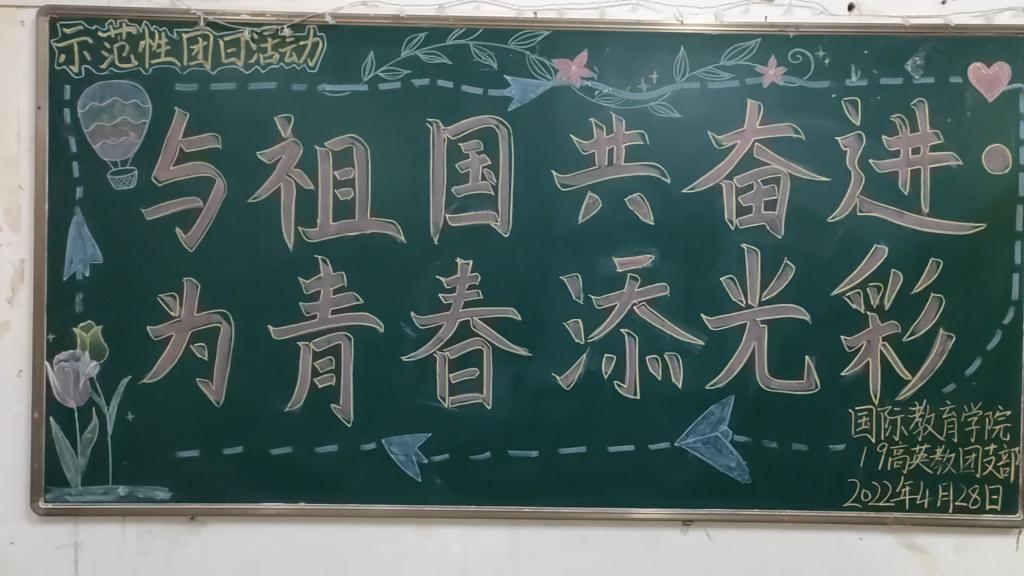 示范性团日活动
与祖国共奋进·
为青春添光彩
国际教育学院
19高英教团支部
2022年4月28日